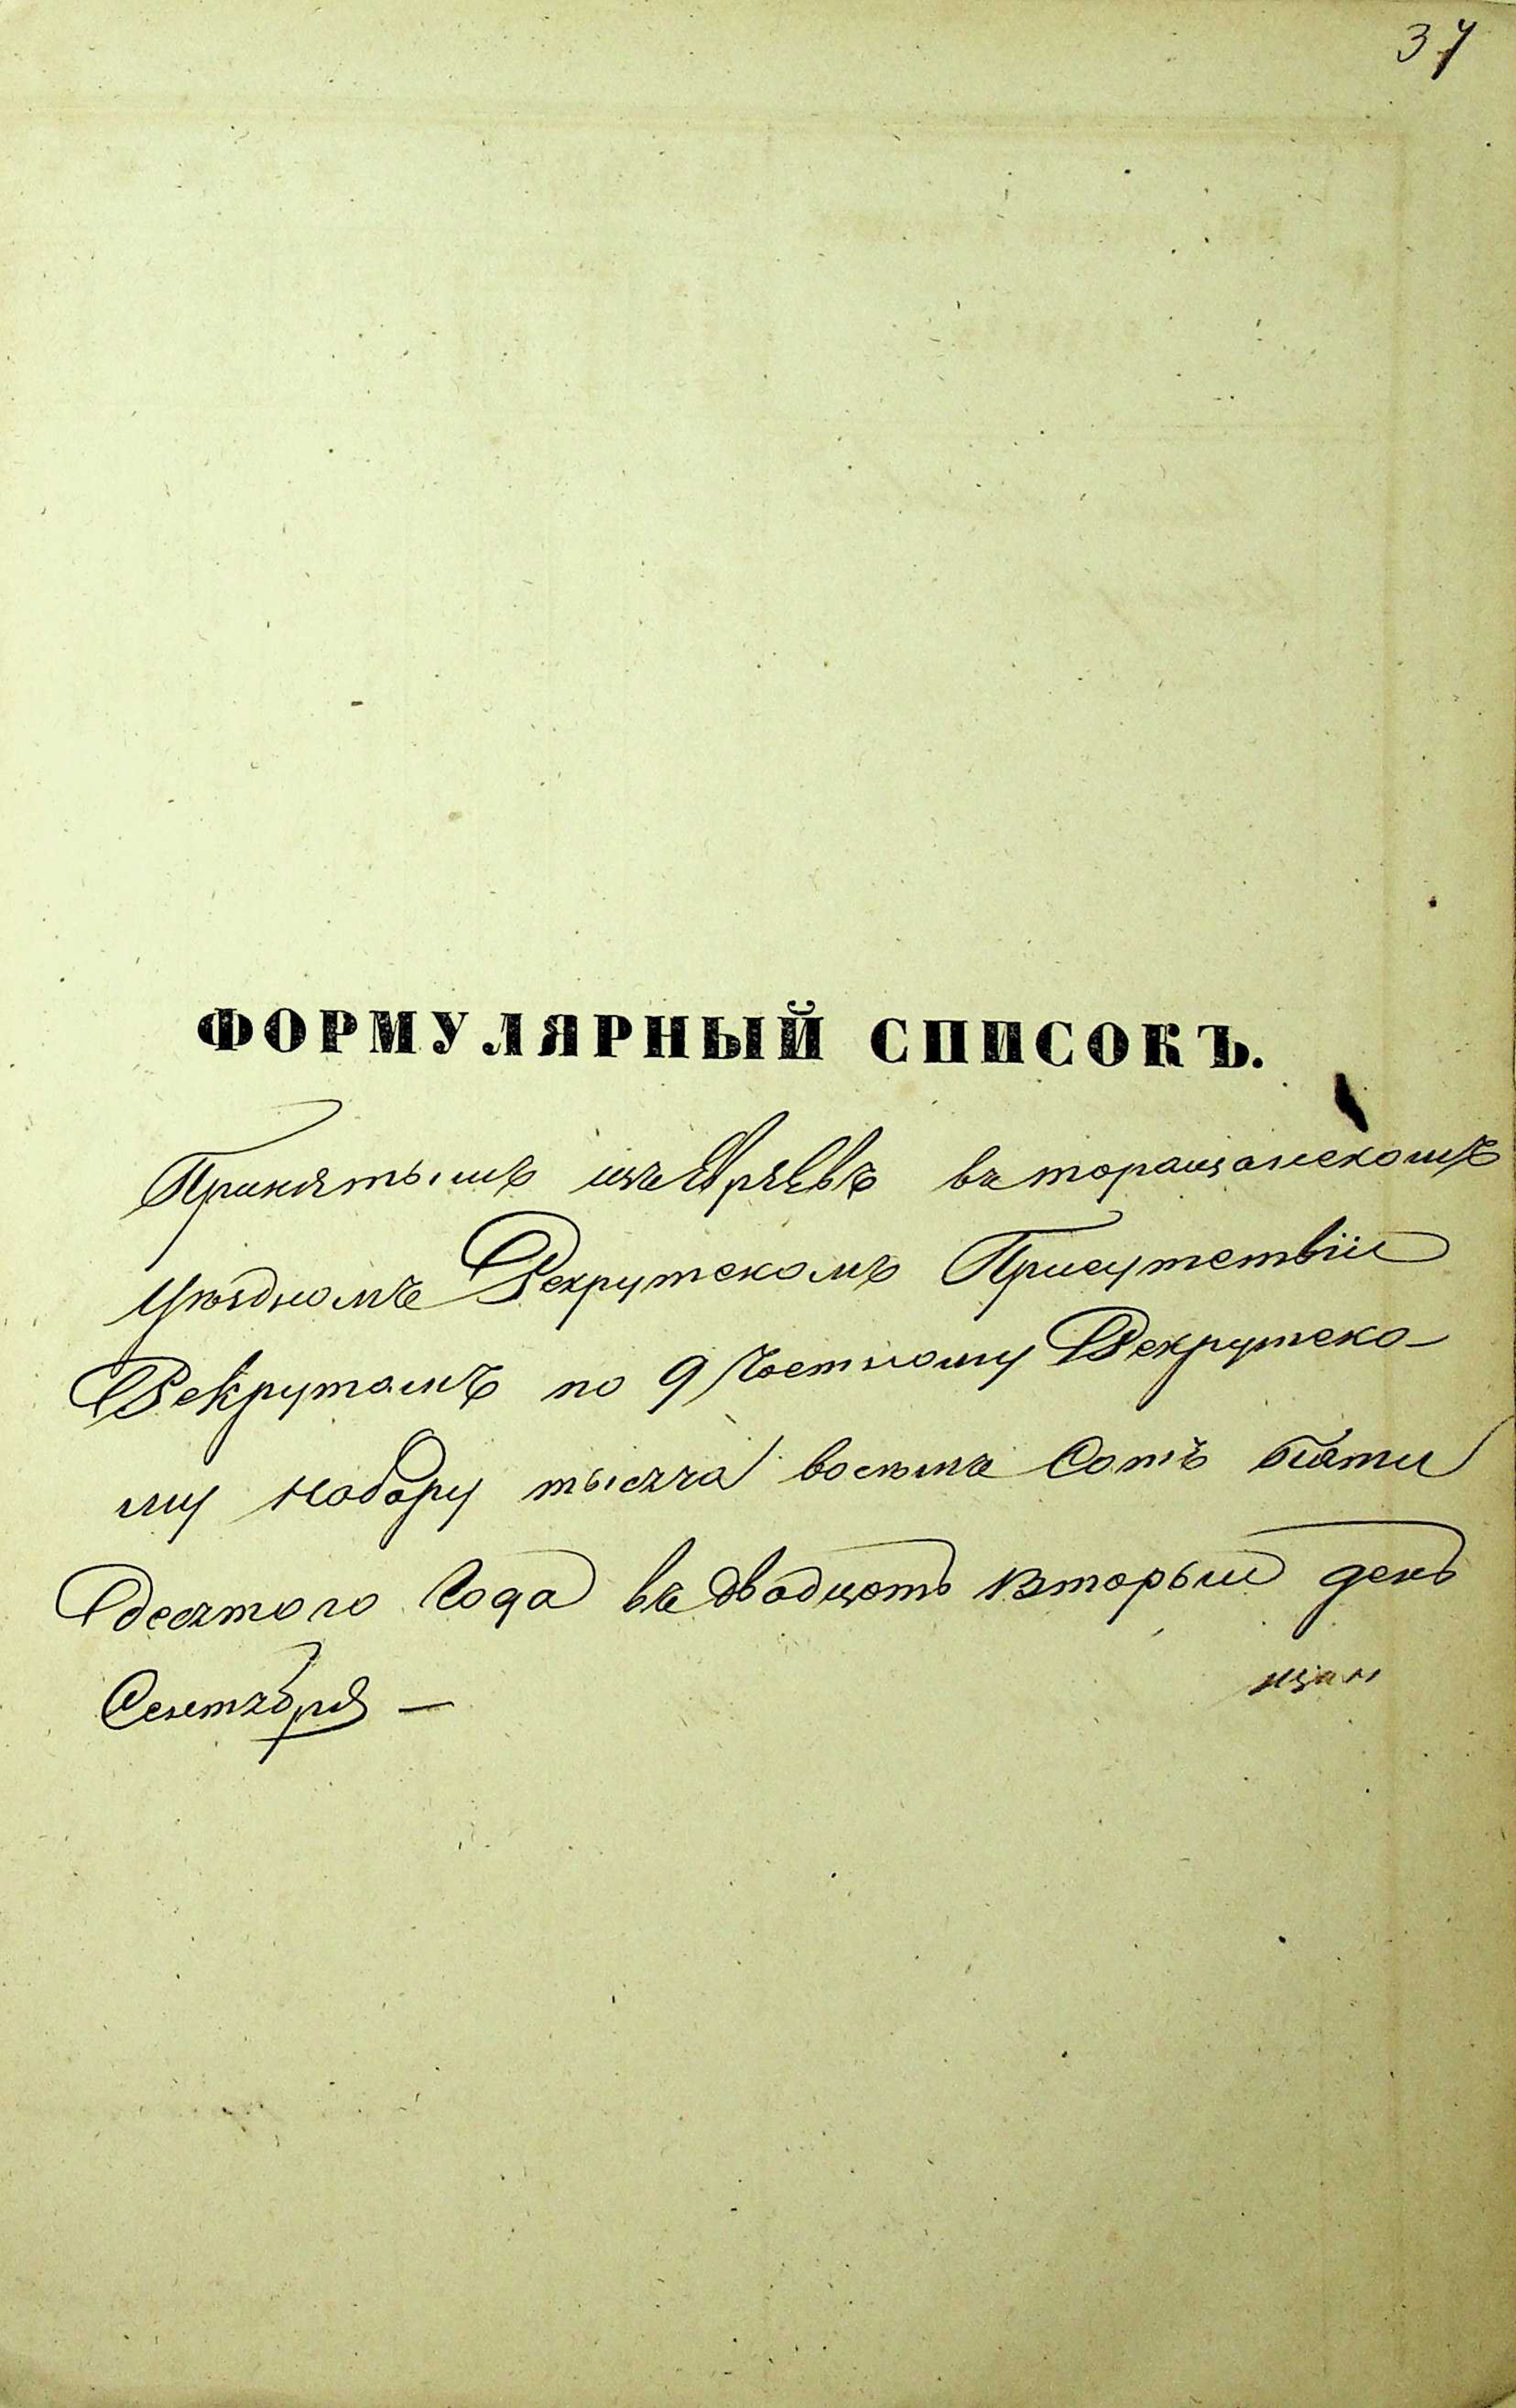 37
ФОРМУЛЯРНЫЙ СПИСОКЪ.
Принятымъ изъ Евреевъ въ торащанскомъ
Уѣздномъ Рекрутскомъ Присутствіи
Рекрутамъ по 9 Частному Рекрутско-
му набору тысяча восемъ Сотъ Пяти
десятого Года въ двадцать вторый день
Сентября —